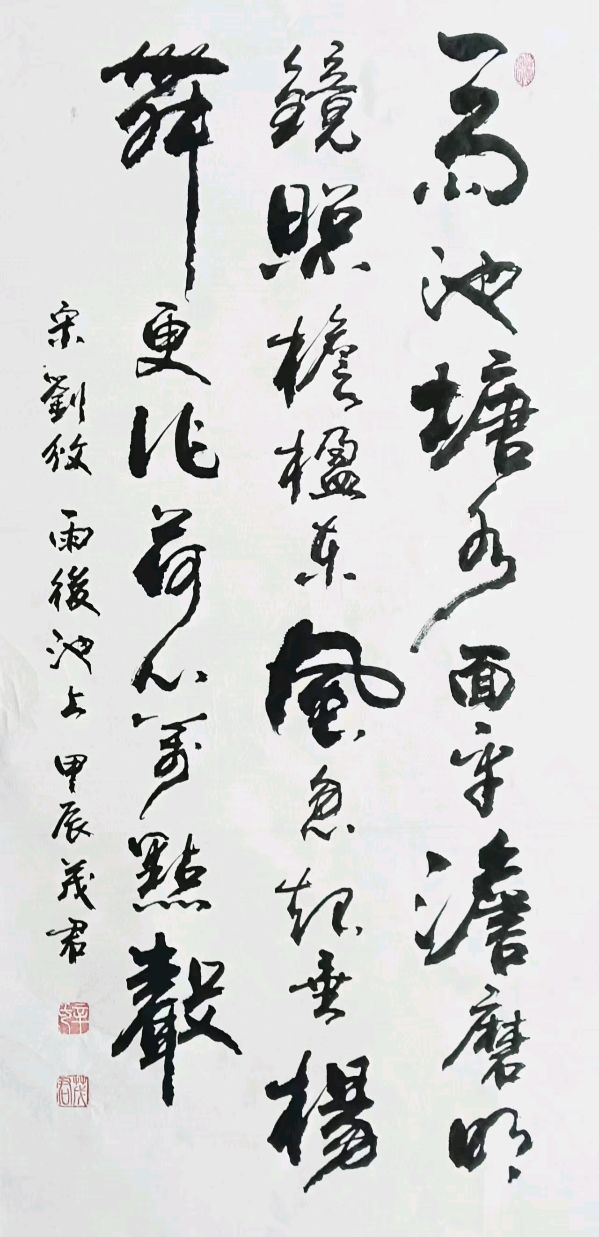 一雨池塘水面平澹磨明
鏡照檐楹東風忽起垂楊
舞更作荷心萬點聲
宋劉攽 雨後池上 甲辰茂君
茂君